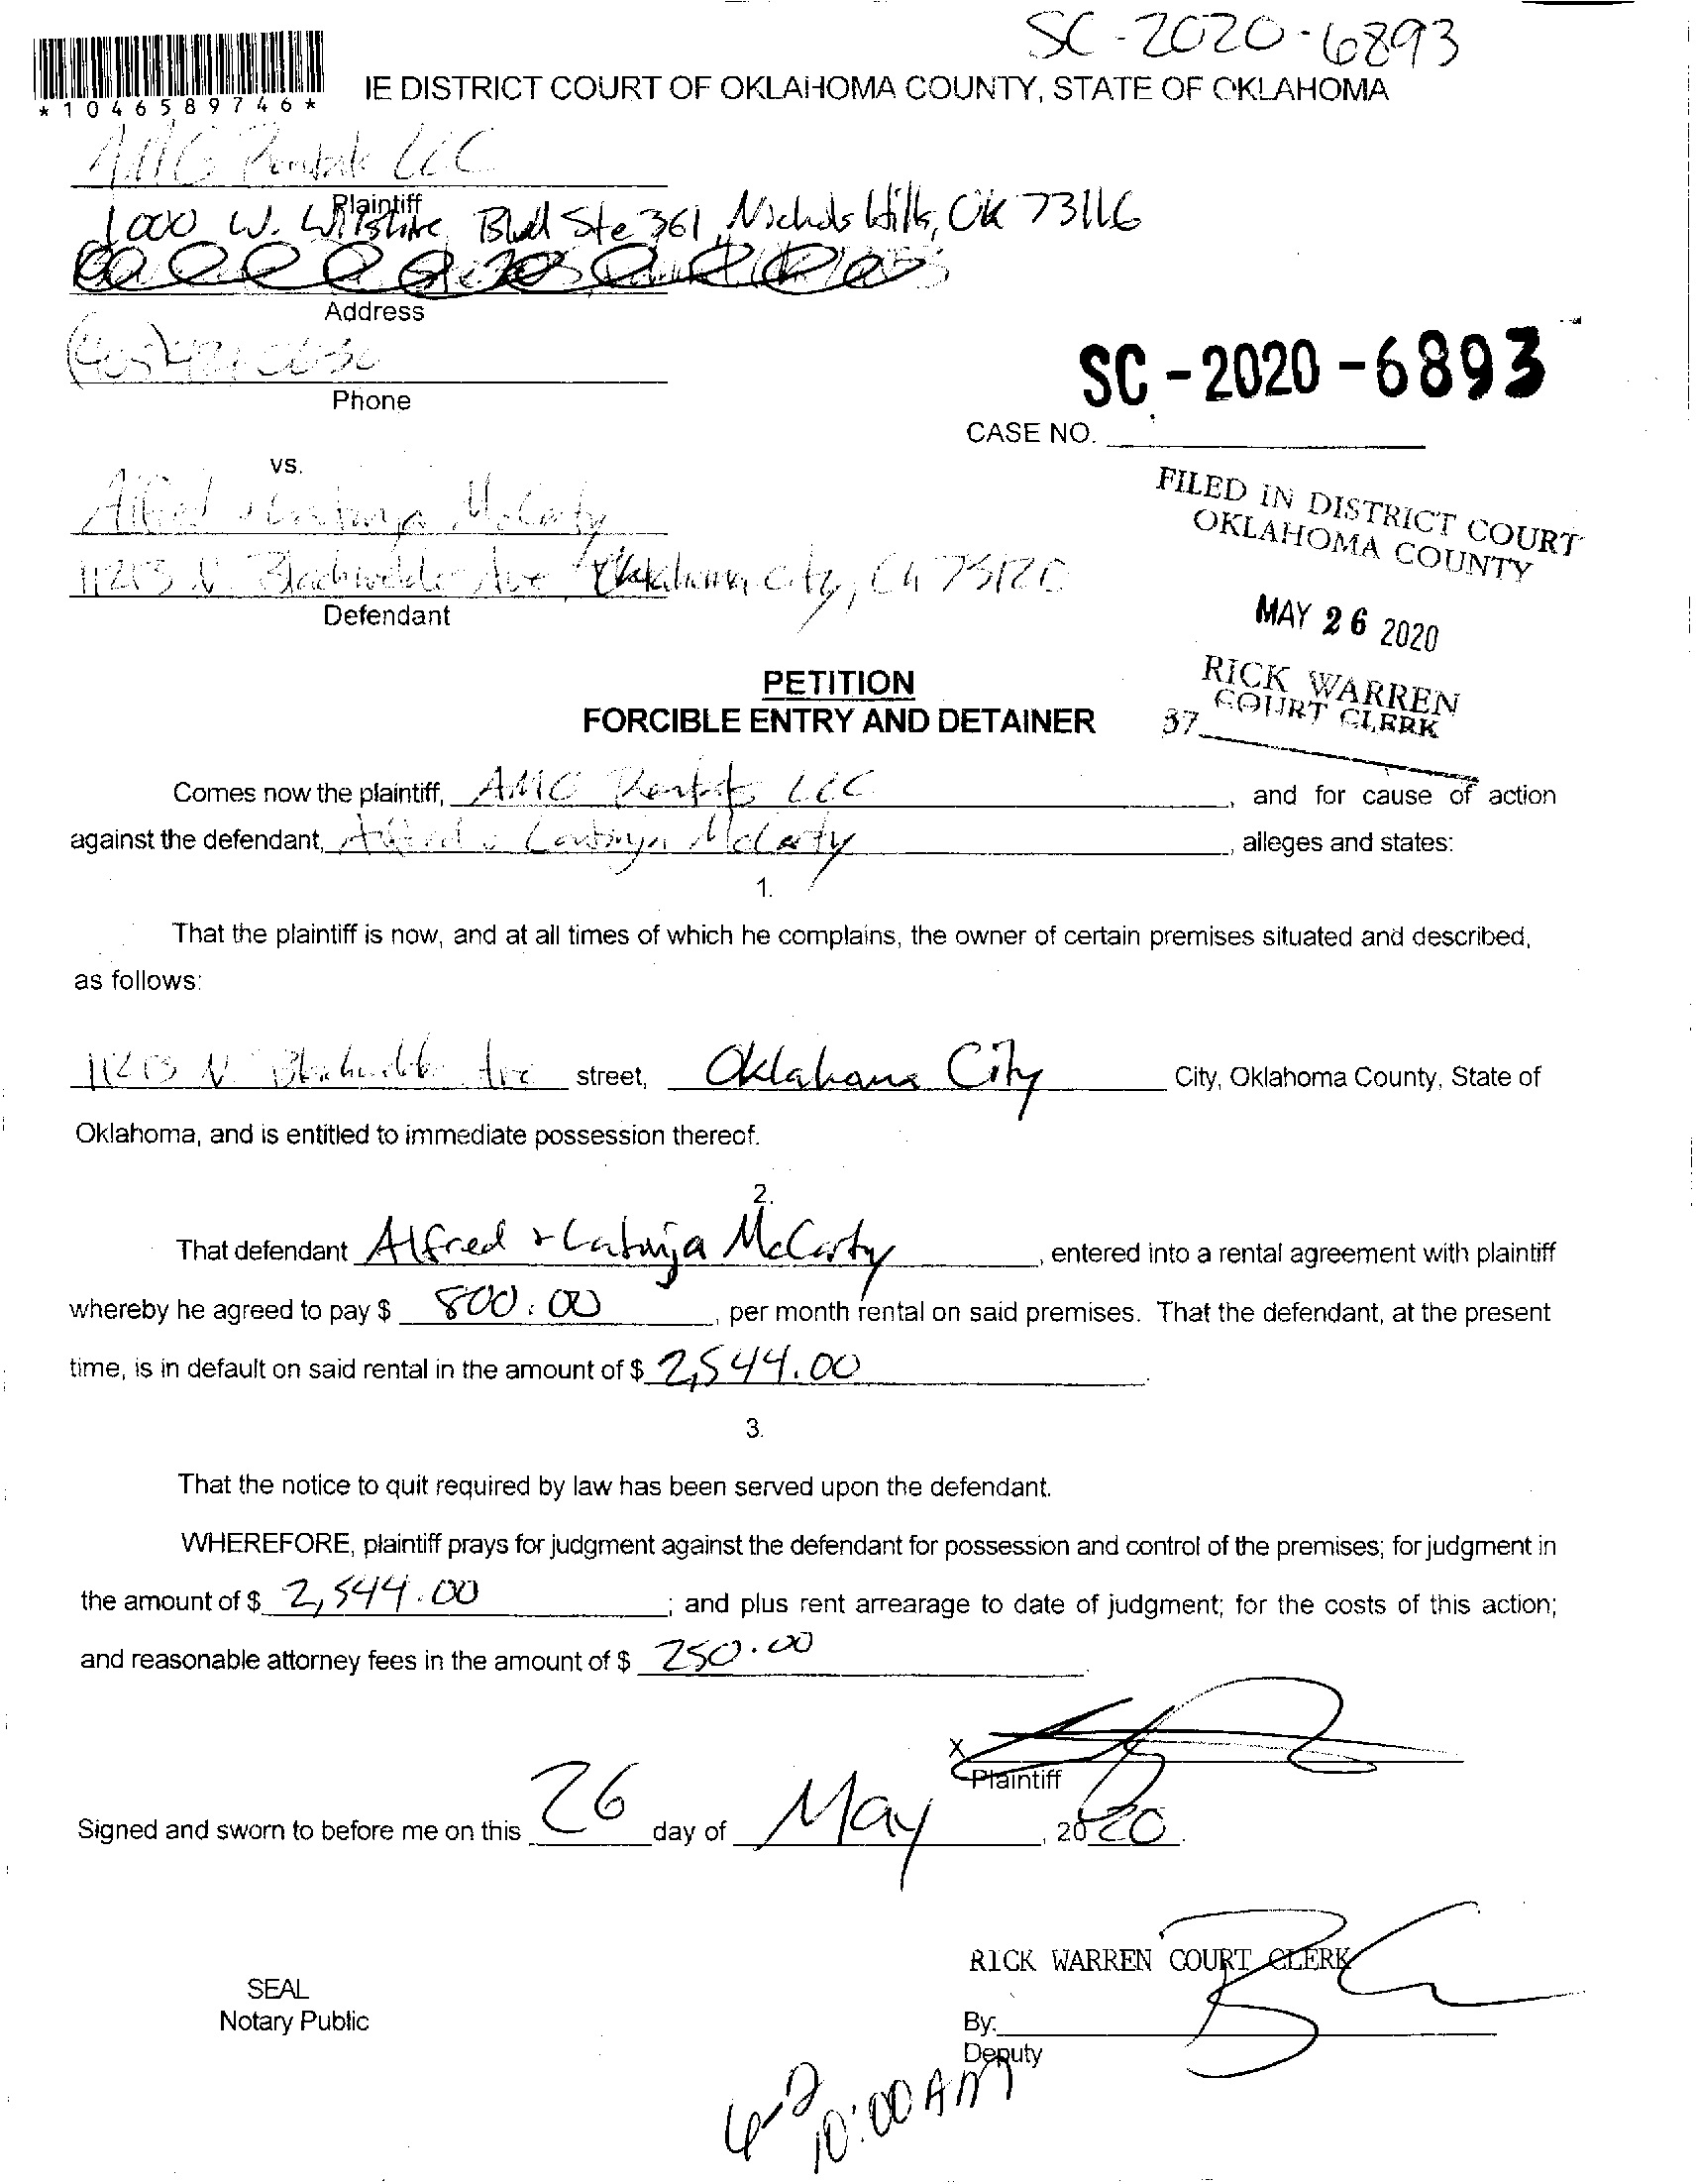 SC-2020-6893
*1046589746*
IE DISTRICT COURT OF OKLAHOMA COUNTY, STATE OF OKLAHOMA
AMG Rentals LLC
Plaintiff
1000 W. Wilshire Blvd Ste 361, Nichols Hills, OK 73116
Address
(405)
Phone
SC-2020-6893
CASE NO.
vs.
Alfred & McCarty
11213 N. Blackwelder Ave Oklahoma City, OK 73120
Defendant
FILED IN DISTRICT COURT
OKLAHOMA COUNTY
MAY 26 2020
RICK WARREN
COURT CLERK
37
PETITION
FORCIBLE ENTRY AND DETAINER
Comes now the plaintiff, AMG Rentals LLC, and for cause of action
against the defendant, Alfred & McCarty, alleges and states:
1.
That the plaintiff is now, and at all times of which he complains, the owner of certain premises situated and described,
as follows:
11213 N Blackwelder Ave street, Oklahoma City City, Oklahoma County, State of
Oklahoma, and is entitled to immediate possession thereof.
2.
That defendant Alfred & McCarty, entered into a rental agreement with plaintiff
whereby he agreed to pay $ 800.00, per month rental on said premises. That the defendant, at the present
time, is in default on said rental in the amount of $ 2,544.00.
3.
That the notice to quit required by law has been served upon the defendant.
WHEREFORE, plaintiff prays for judgment against the defendant for possession and control of the premises; for judgment in
the amount of $ 2,544.00; and plus rent arrearage to date of judgment; for the costs of this action;
and reasonable attorney fees in the amount of $ 250.00.
X
Plaintiff
Signed and sworn to before me on this 26 day of May, 2020.
RICK WARREN COURT CLERK
SEAL
Notary Public
By:
Deputy
6-2
10:00 AM